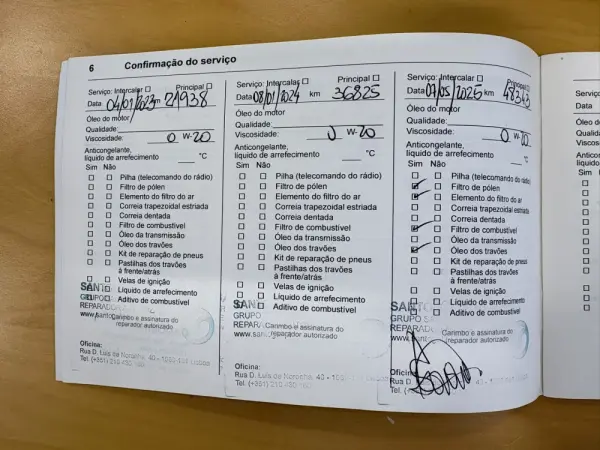 6 Confirmação do serviço
Serviço: Intercalar Principal
Data 04/01/2023 km 21938
Óleo do motor
Qualidade:
Viscosidade: 0 W-20
Anticongelante,
líquido de arrefecimento °C
Sim Não
Pilha (telecomando do rádio)
Filtro de pólen
Elemento do filtro do ar
Correia trapezoidal estriada
Correia dentada
Filtro de combustível
Óleo da transmissão
Óleo dos travões
Kit de reparação de pneus
Pastilhas dos travões
à frente/atrás
Velas de ignição
Líquido de arrefecimento
Aditivo de combustível
GRUPO
Carimbo e assinatura do
reparador autorizado
Oficina:
Rua D. Luís de Noronha, 40 -
Tel. (+351) 210
Serviço: Intercalar Principal
Data 08/01/2024 km 36825
Óleo do motor
Qualidade:
Viscosidade: 0 W-20
Anticongelante,
líquido de arrefecimento °C
Sim Não
Pilha (telecomando do rádio)
Filtro de pólen
Elemento do filtro do ar
Correia trapezoidal estriada
Correia dentada
Filtro de combustível
Óleo da transmissão
Óleo dos travões
Kit de reparação de pneus
Pastilhas dos travões
à frente/atrás
Velas de ignição
Líquido de arrefecimento
Aditivo de combustível
GRUPO
Carimbo e assinatura do
reparador autorizado
Oficina:
Rua D. Luís de Noronha, 40 -
Tel. (+351) 210
Serviço: Intercalar Principal
Data /05/2025 km 48343
Óleo do motor
Qualidade:
Viscosidade: 0 W-20
Anticongelante,
líquido de arrefecimento °C
Sim Não
Pilha (telecomando do rádio)
Filtro de pólen
Elemento do filtro do ar
Correia trapezoidal estriada
Correia dentada
Filtro de combustível
Óleo da transmissão
Óleo dos travões
Kit de reparação de pneus
Pastilhas dos travões
à frente/atrás
Velas de ignição
Líquido de arrefecimento
Aditivo de combustível
GRUPO
Carimbo e assinatura do
reparador autorizado
Oficina:
Rua D.
Tel.
Data
Sim